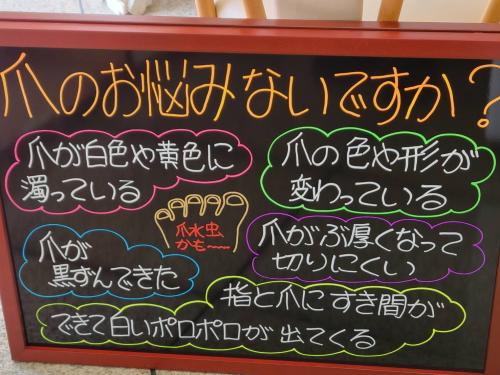 爪のお悩みないですか？
爪が白色や黄色に
濁っている
爪の色や形が
変わっている
爪水虫
かも〜〜
爪が
黒ずんできた
爪がぶ厚くなって
切りにくい
指と爪にすき間が
できて白いポロポロが出てくる